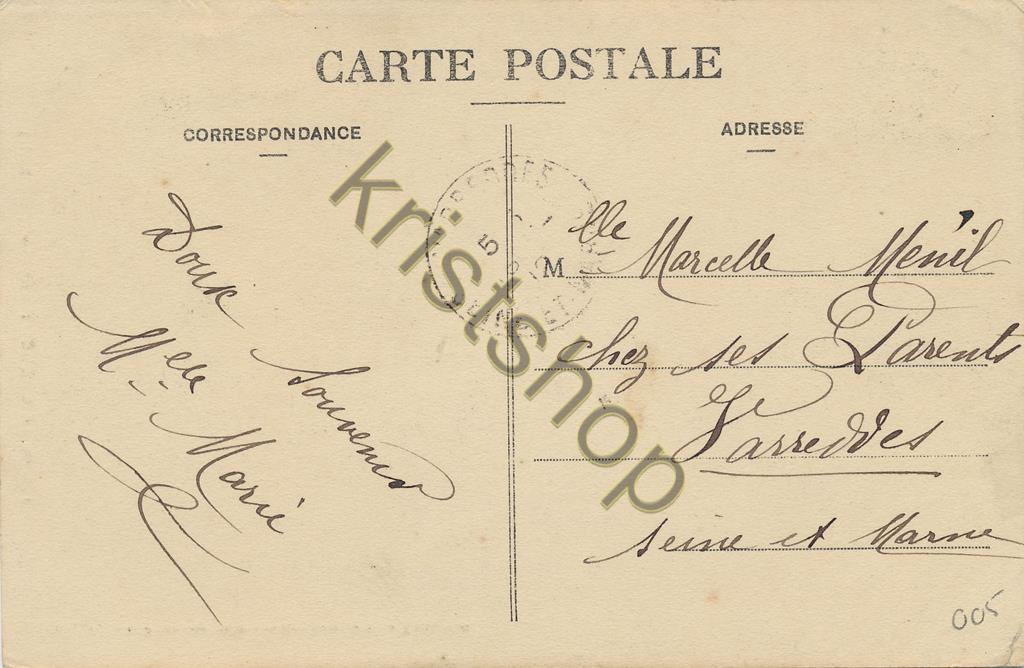 CARTE POSTALE
CORRESPONDANCE
ADRESSE
Doux Souvenir
Melle Marie
Mlle Marcelle Ménil
chez ses Parents
Varreddes
Seine et Marne
005
kristshop